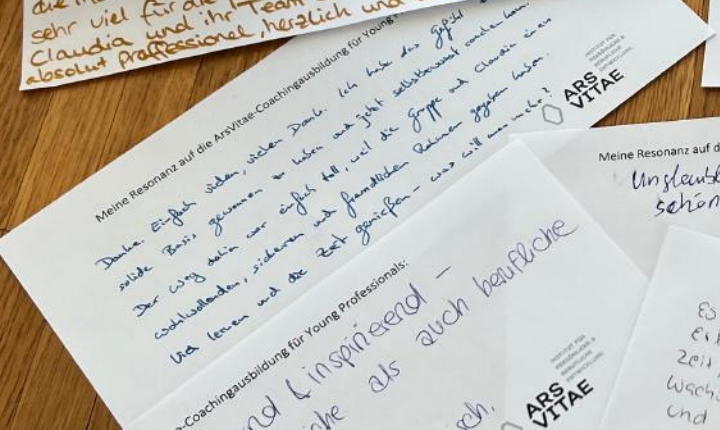 sehr viel für die
Claudia und ihr Team
absolut professionel, herzlich und
Meine Resonanz auf die ArsVitae-Coachingausbildung für Young
Danke. Einfach vielen, vielen Dank. Ich habe das Gefühl eine
solide Basis gewonnen zu haben und jetzt selbstbewusst
Der Weg dahin war einfach toll, weil die Gruppe und Claudia einen
wohlwollenden, sicheren und freundlichen Rahmen gegeben haben.
Viel lernen und die Zeit genießen – was will man mehr?
INSTITUT FÜR
PERSÖNLICHE &
BERUFLICHE
ENTWICKLUNG
ARS
VITAE
Meine Resonanz auf d
Unglaubl
schön
-Coachingausbildung für Young Professionals:
nd & inspirierend –
che als auch berufliche
sch.
INSTITUT FÜR
PERSÖNLICHE &
BERUFLICHE
ENTWICKLUNG
ARS
VITAE
Es
Zeit
und